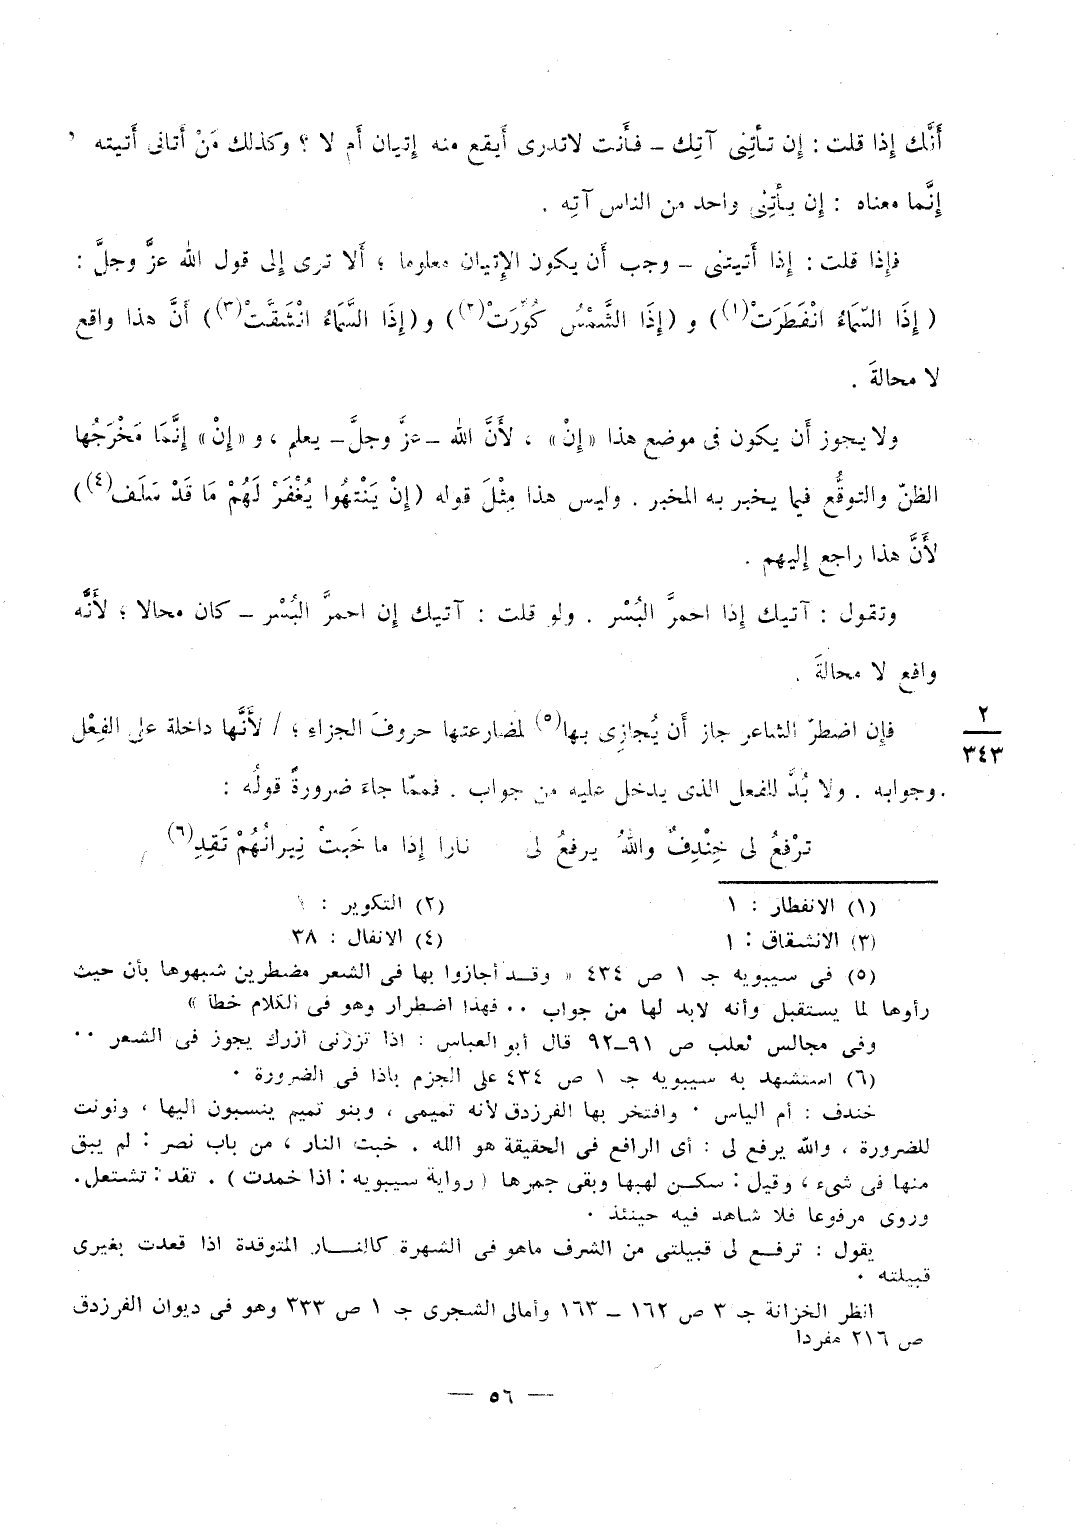 أَنَّك إِذا قلت : إِن تأْتِنى آتِك – فأَنت لاتدرى أَيقع منه إِتيان أَم لا ؟ وكذلك مَنْ أَتانى أَتيته ،
إِنَّما معناه : إِن يأْتِنى واحد من الناس آتِه .
فإِذا قلت : إِذا أَتيتنى – وجب أَن يكون الإِتيان معلوما ؛ أَلا ترى إِلى قول الله عزَّ وجلَّ :
( إِذَا السَّمَاءُ انْفَطَرَتْ(١) ) و (إِذَا الشَّمْسُ كُوِّرَتْ(٢) ) و (إِذَا السَّمَاءُ انْشَقَّتْ(٣) ) أَنَّ هذا واقع
لا محالةَ .
ولا يجوز أَن يكون فى موضع هذا «إِنْ» ، لأَنَّ الله –عزَّ وجلَّ– يعلم ، و «إِنْ» إِنَّمَا مَخْرَجُها
الظنّ والتوقُّع فيما يخبر به المخبر . وليس هذا مِثْلَ قوله (إِنْ يَنْتهُوا يُغْفَرْ لَهُمْ مَا قَدْ سَلَف(٤) )
لأَنَّ هذا راجع إِليهم .
وتقول : آتيك إِذا احمرَّ البُسْر . ولو قلت : آتيك إِن احمرَّ البُسْر – كان محالا ؛ لأَنَّه
واقع لا محالةَ .
فإِن اضطرّ الشاعر جاز أَن يُجازِى بها(٥) لمضارعتها حروفَ الجزاءِ ؛ / لأَنَّها داخلة على الفِعْل
٢
٣٤٣
وجوابه . ولا بُدَّ للفعل الذى يدخل عليه من جواب . فممّا جاءَ ضرورةً قولُه :
ترْفعُ لى خِنْدِفٌ واللهُ يرفعُ لى نارا إِذا ما خَبَتْ نِيرانُهُمْ تَقِدِ(٦)
(١) الانفطار : ١ (٢) التكوير : ١
(٣) الانشقاق : ١ (٤) الانفال : ٣٨
(٥) فى سيبويه جـ ١ ص ٤٣٤ « وقد أجازوا بها فى الشعر مضطرين شبهوها بأن حيث
رأوها لما يستقبل وأنه لابد لها من جواب ٠٠ فهذا اضطرار وهو فى الكلام خطأ »
وفى مجالس ثعلب ص ٩١–٩٢ قال أبو العباس : اذا تزرنى أزرك يجوز فى الشعر ٠٠
(٦) استشهد به سيبويه جـ ١ ص ٤٣٤ على الجزم باذا فى الضرورة ٠
خندف : أم الياس ٠ وافتخر بها الفرزدق لأنه تميمى ، وبنو تميم ينسبون اليها ، ونونت
للضرورة ، والله يرفع لى : أى الرافع فى الحقيقة هو الله . خبت النار ، من باب نصر : لم يبق
منها فى شىء ، وقيل : سكن لهبها وبقى جمرها ( رواية سيبويه : اذا خمدت ) . تقد : تشتعل.
وروى مرفوعا فلا شاهد فيه حينئذ ٠
يقول : ترفع لى قبيلتى من الشرف ماهو فى الشهرة كالنار المتوقدة اذا قعدت بغيرى
قبيلته ٠
انظر الخزانة جـ ٣ ص ١٦٢ – ١٦٣ وأمالى الشجرى جـ ١ ص ٣٣٣ وهو فى ديوان الفرزدق
ص ٢١٦ مفردا
— ٥٦ —